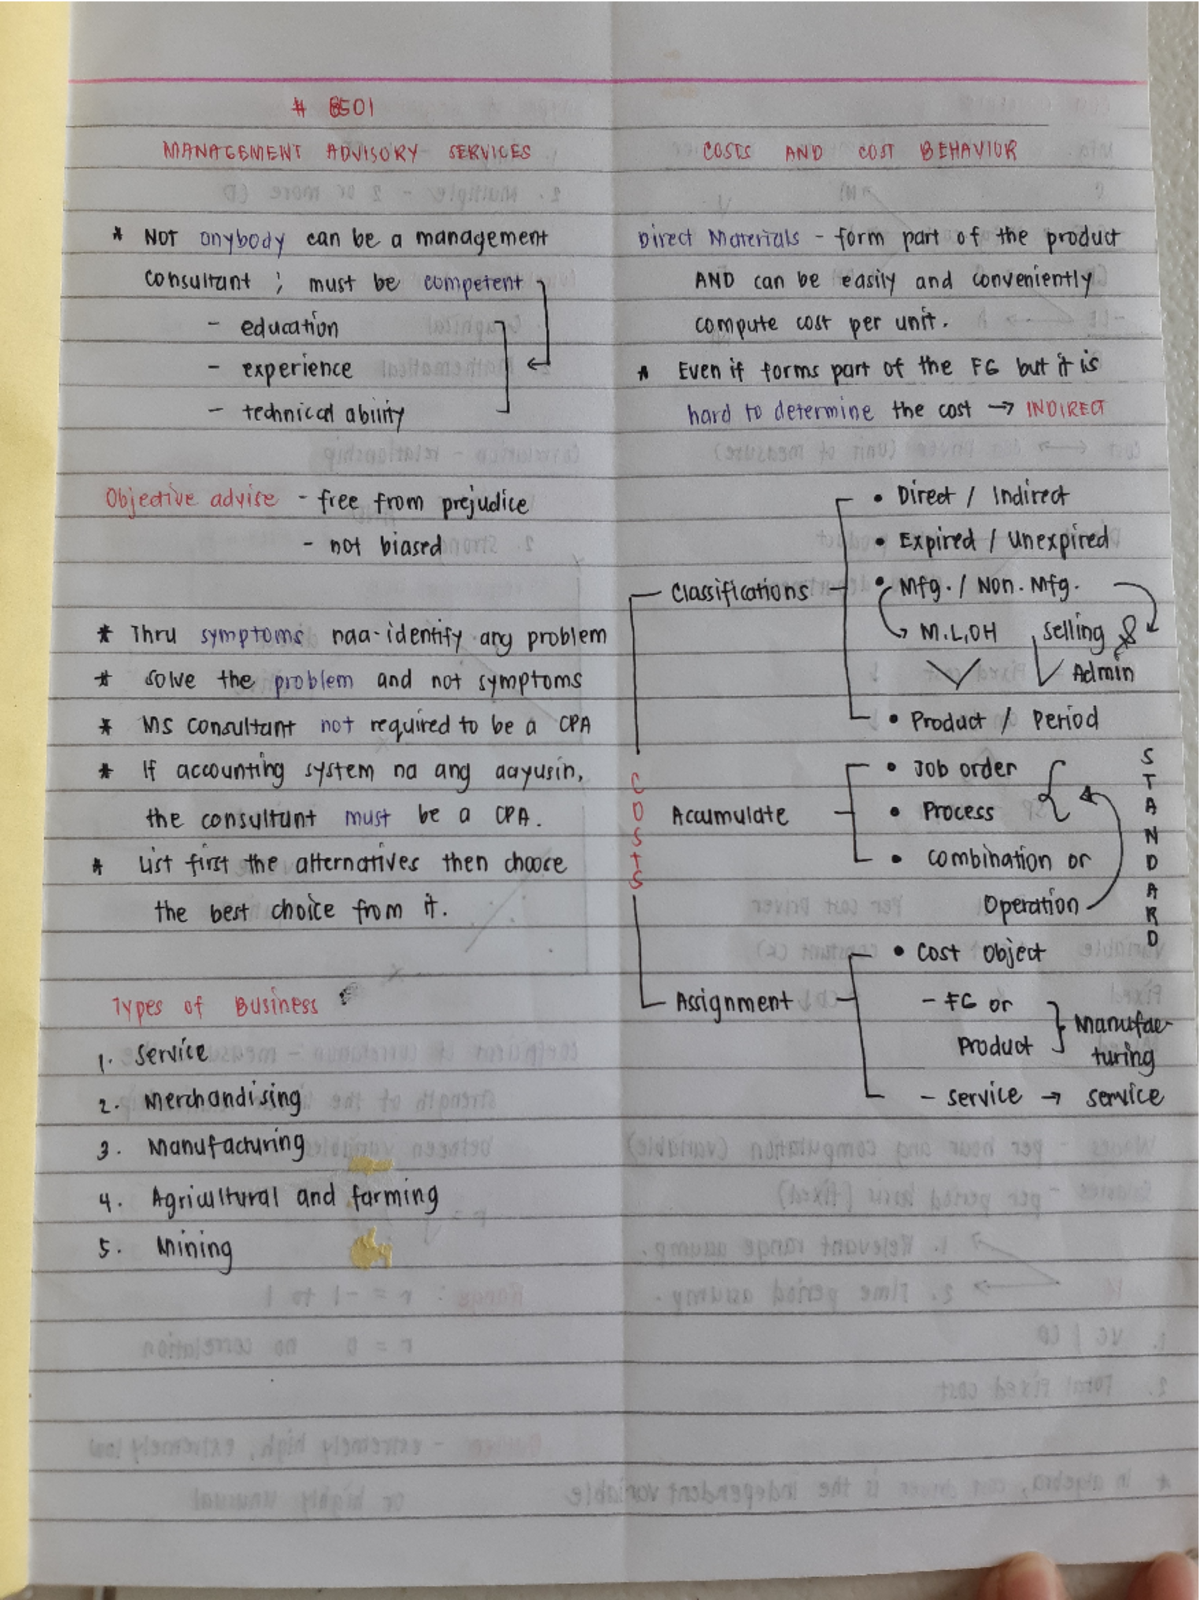 # 8501
MANAGEMENT ADVISORY SERVICES
* NOT anybody can be a management
consultant ; must be competent
- education
- experience
- technical ability
Objective advise - free from prejudice
- not biased
* Thru symptoms naa-identify any problem
* solve the problem and not symptoms
* MS consultant not required to be a CPA
* If accounting system na ang aayusin,
the consultant must be a CPA.
* List first the alternatives then choose
the best choice from it.
Types of Business
1. Service
2. Merchandising
3. Manufacturing
4. Agricultural and farming
5. Mining
COSTS AND COST BEHAVIOR
Direct Materials - form part of the product
AND can be easily and conveniently
compute cost per unit.
* Even if forms part of the FG but it is
hard to determine the cost → INDIRECT
COSTS
Classifications
• Direct / Indirect
• Expired / Unexpired
• Mfg. / Non. Mfg.
M, L, OH
Selling &
Admin
• Product / Period
Accumulate
• Job order
• Process
• Combination or
Operation
STANDARD
Assignment
• Cost Object
- FG or
Product
Manufac-
turing
- service → service